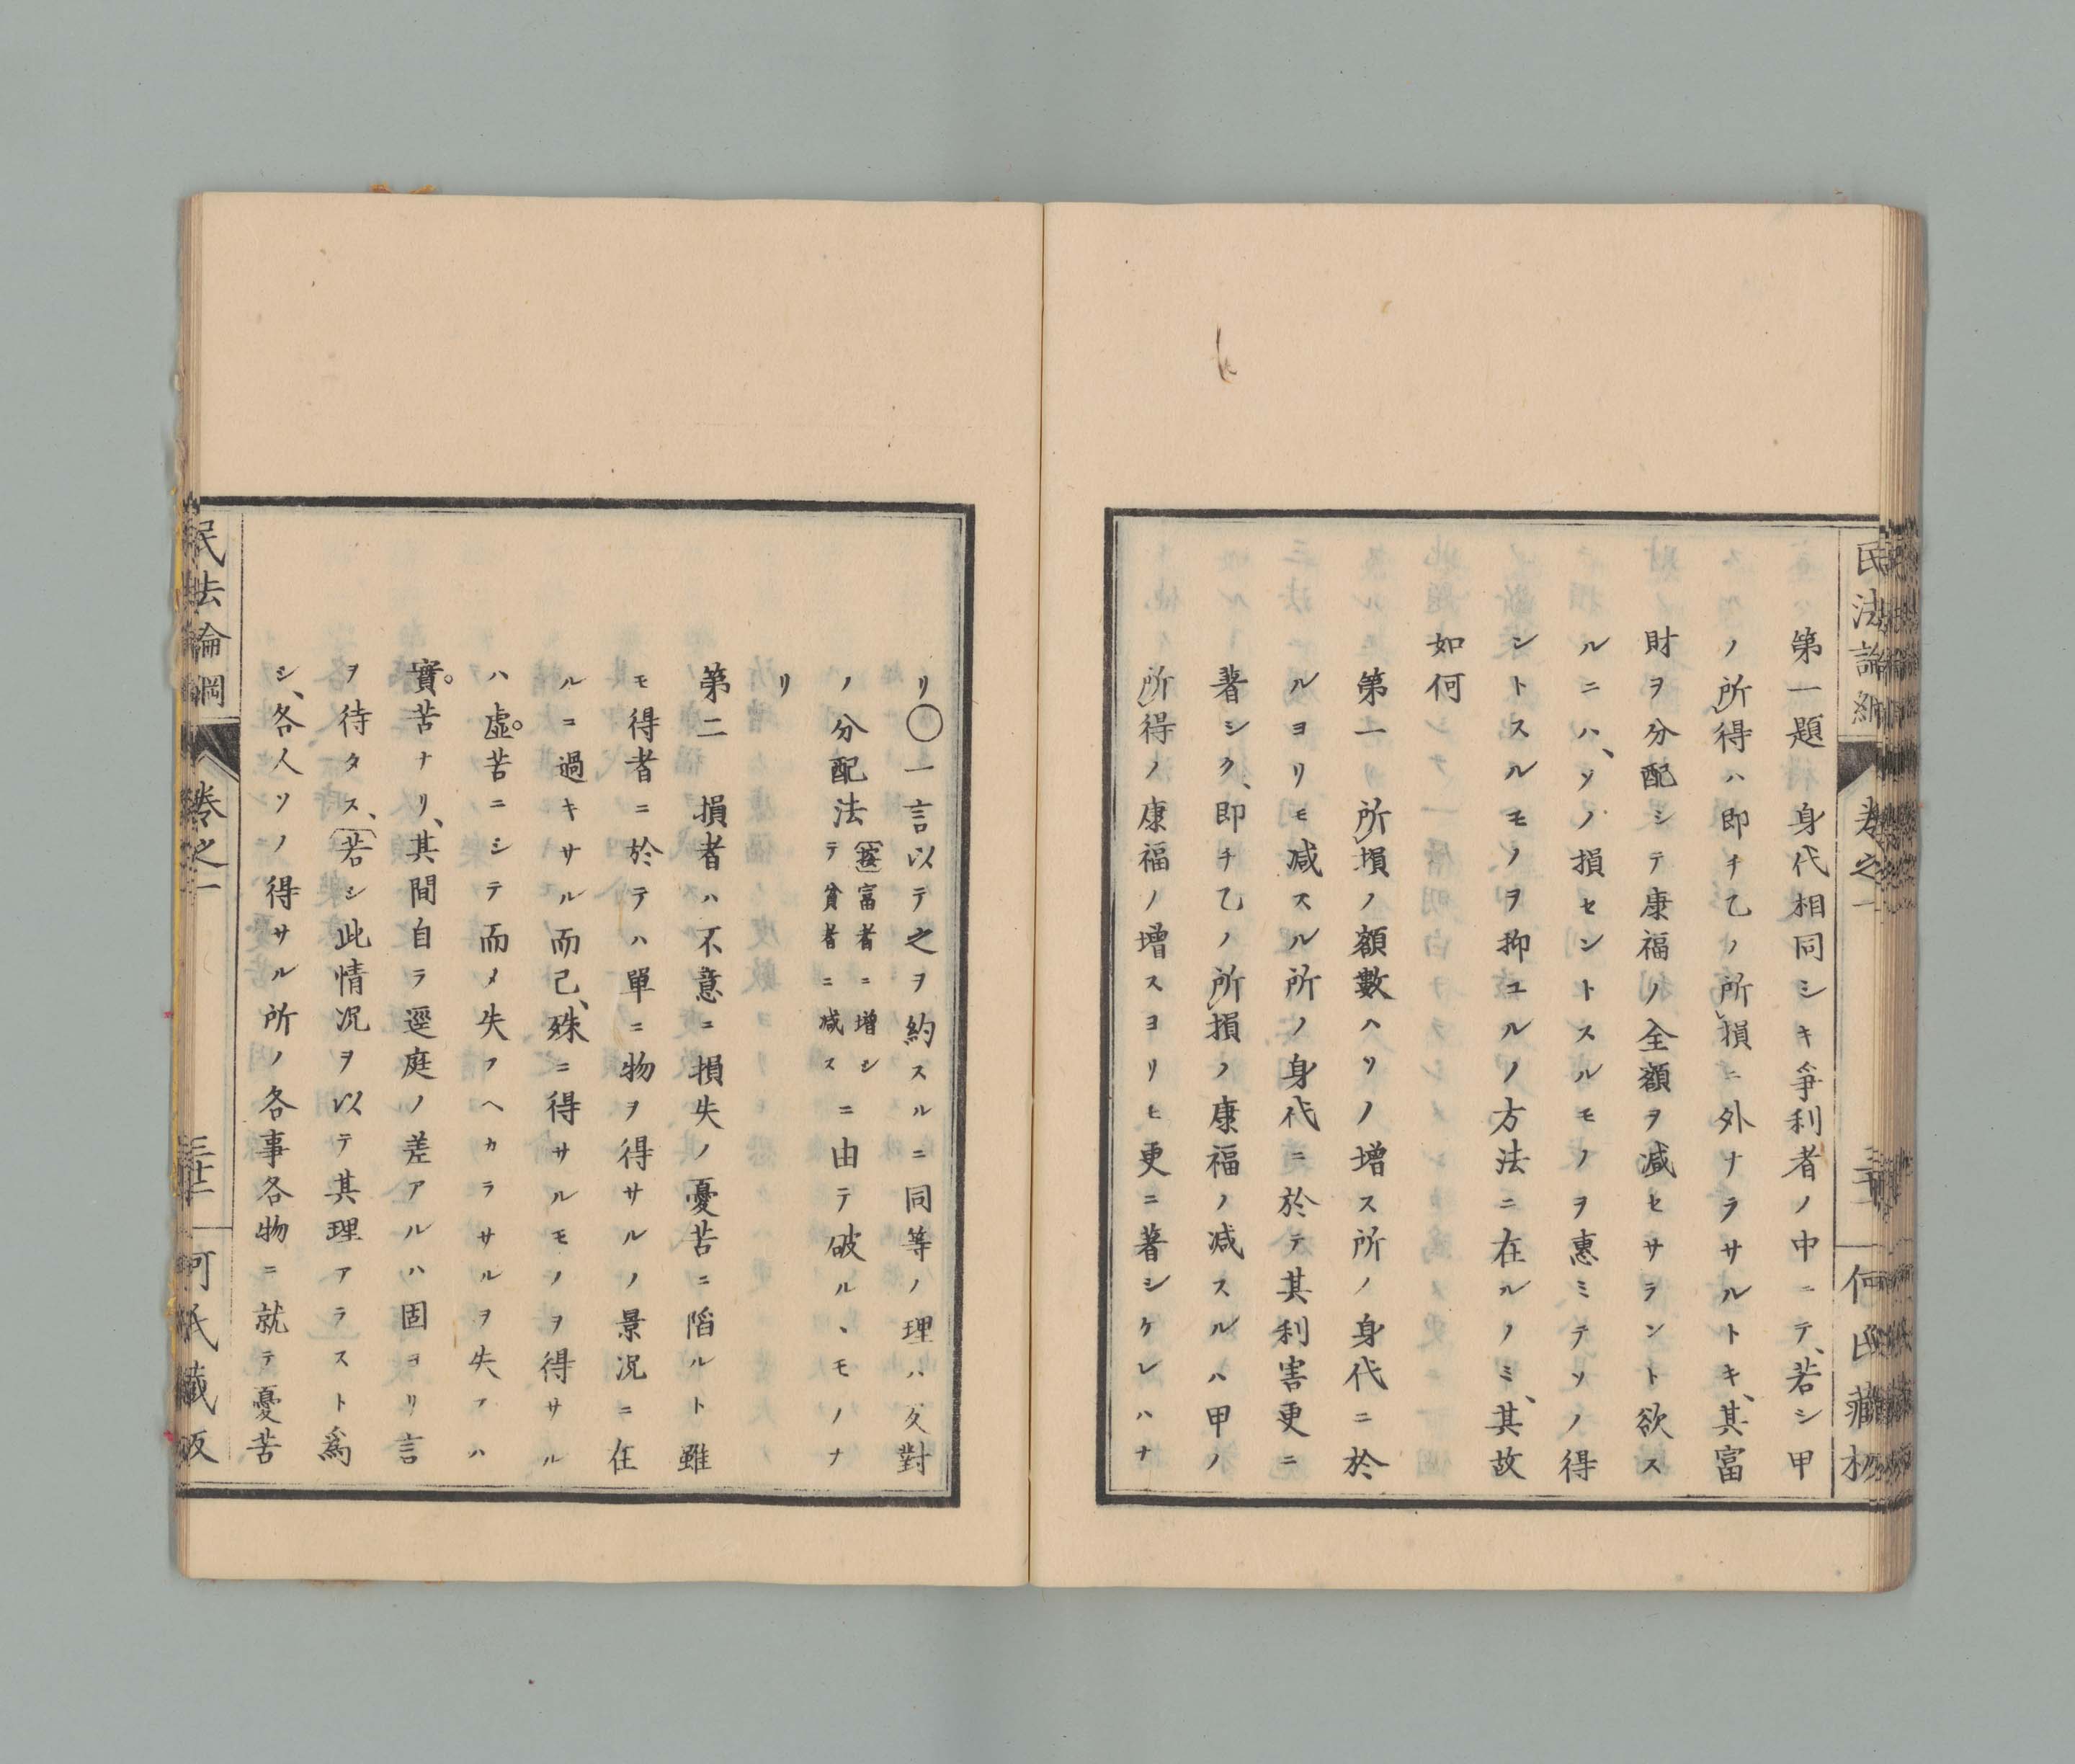 民法論綱 卷之一 何氏藏板
第一題 身代相同シキ爭利者ノ中ニテ、若シ甲
ノ所得ハ即チ乙ノ所損ニ外ナラサルトキ、其富
財ヲ分配シテ康福ノ全額ヲ减セサラント欲ス
ルニハ、ソノ損セントスルモノヲ惠ミテソノ得
ントスルモノヲ抑ユルノ方法ニ在ルノミ、其故
如何
第一 所損ノ額數ハソノ增ス所ノ身代ニ於
ルヨリモ减スル所ノ身代ニ於テ其利害更ニ
著シク、即チ乙ノ所損ノ康福ノ减スルハ甲ノ
所得ノ康福ノ增スヨリモ更ニ著シケレハナ
リ〇一言以テ之ヲ約スルニ同等ノ理ハ反對
ノ分配法(按)富者ニ增シテ貧者ニ减スニ由テ破ルヽモノナ
リ
第二 損者ハ不意ニ損失ノ憂苦ニ陷ルト雖
モ得者ニ於テハ單ニ物ヲ得サルノ景況ニ在
ルニ過キサル而已、殊ニ得サルモノヲ得サル
ハ虛苦ニシテ而メ失フヘカラサルヲ失フハ
實苦ナリ、其間自ラ逕庭ノ差アルハ固ヨリ言
ヲ待タス、(若シ此情況ヲ以テ其理アラスト爲
シ、各人ソノ得サル所ノ各事各物ニ就テ憂苦
民法論綱 卷之一 三十二 何氏藏板